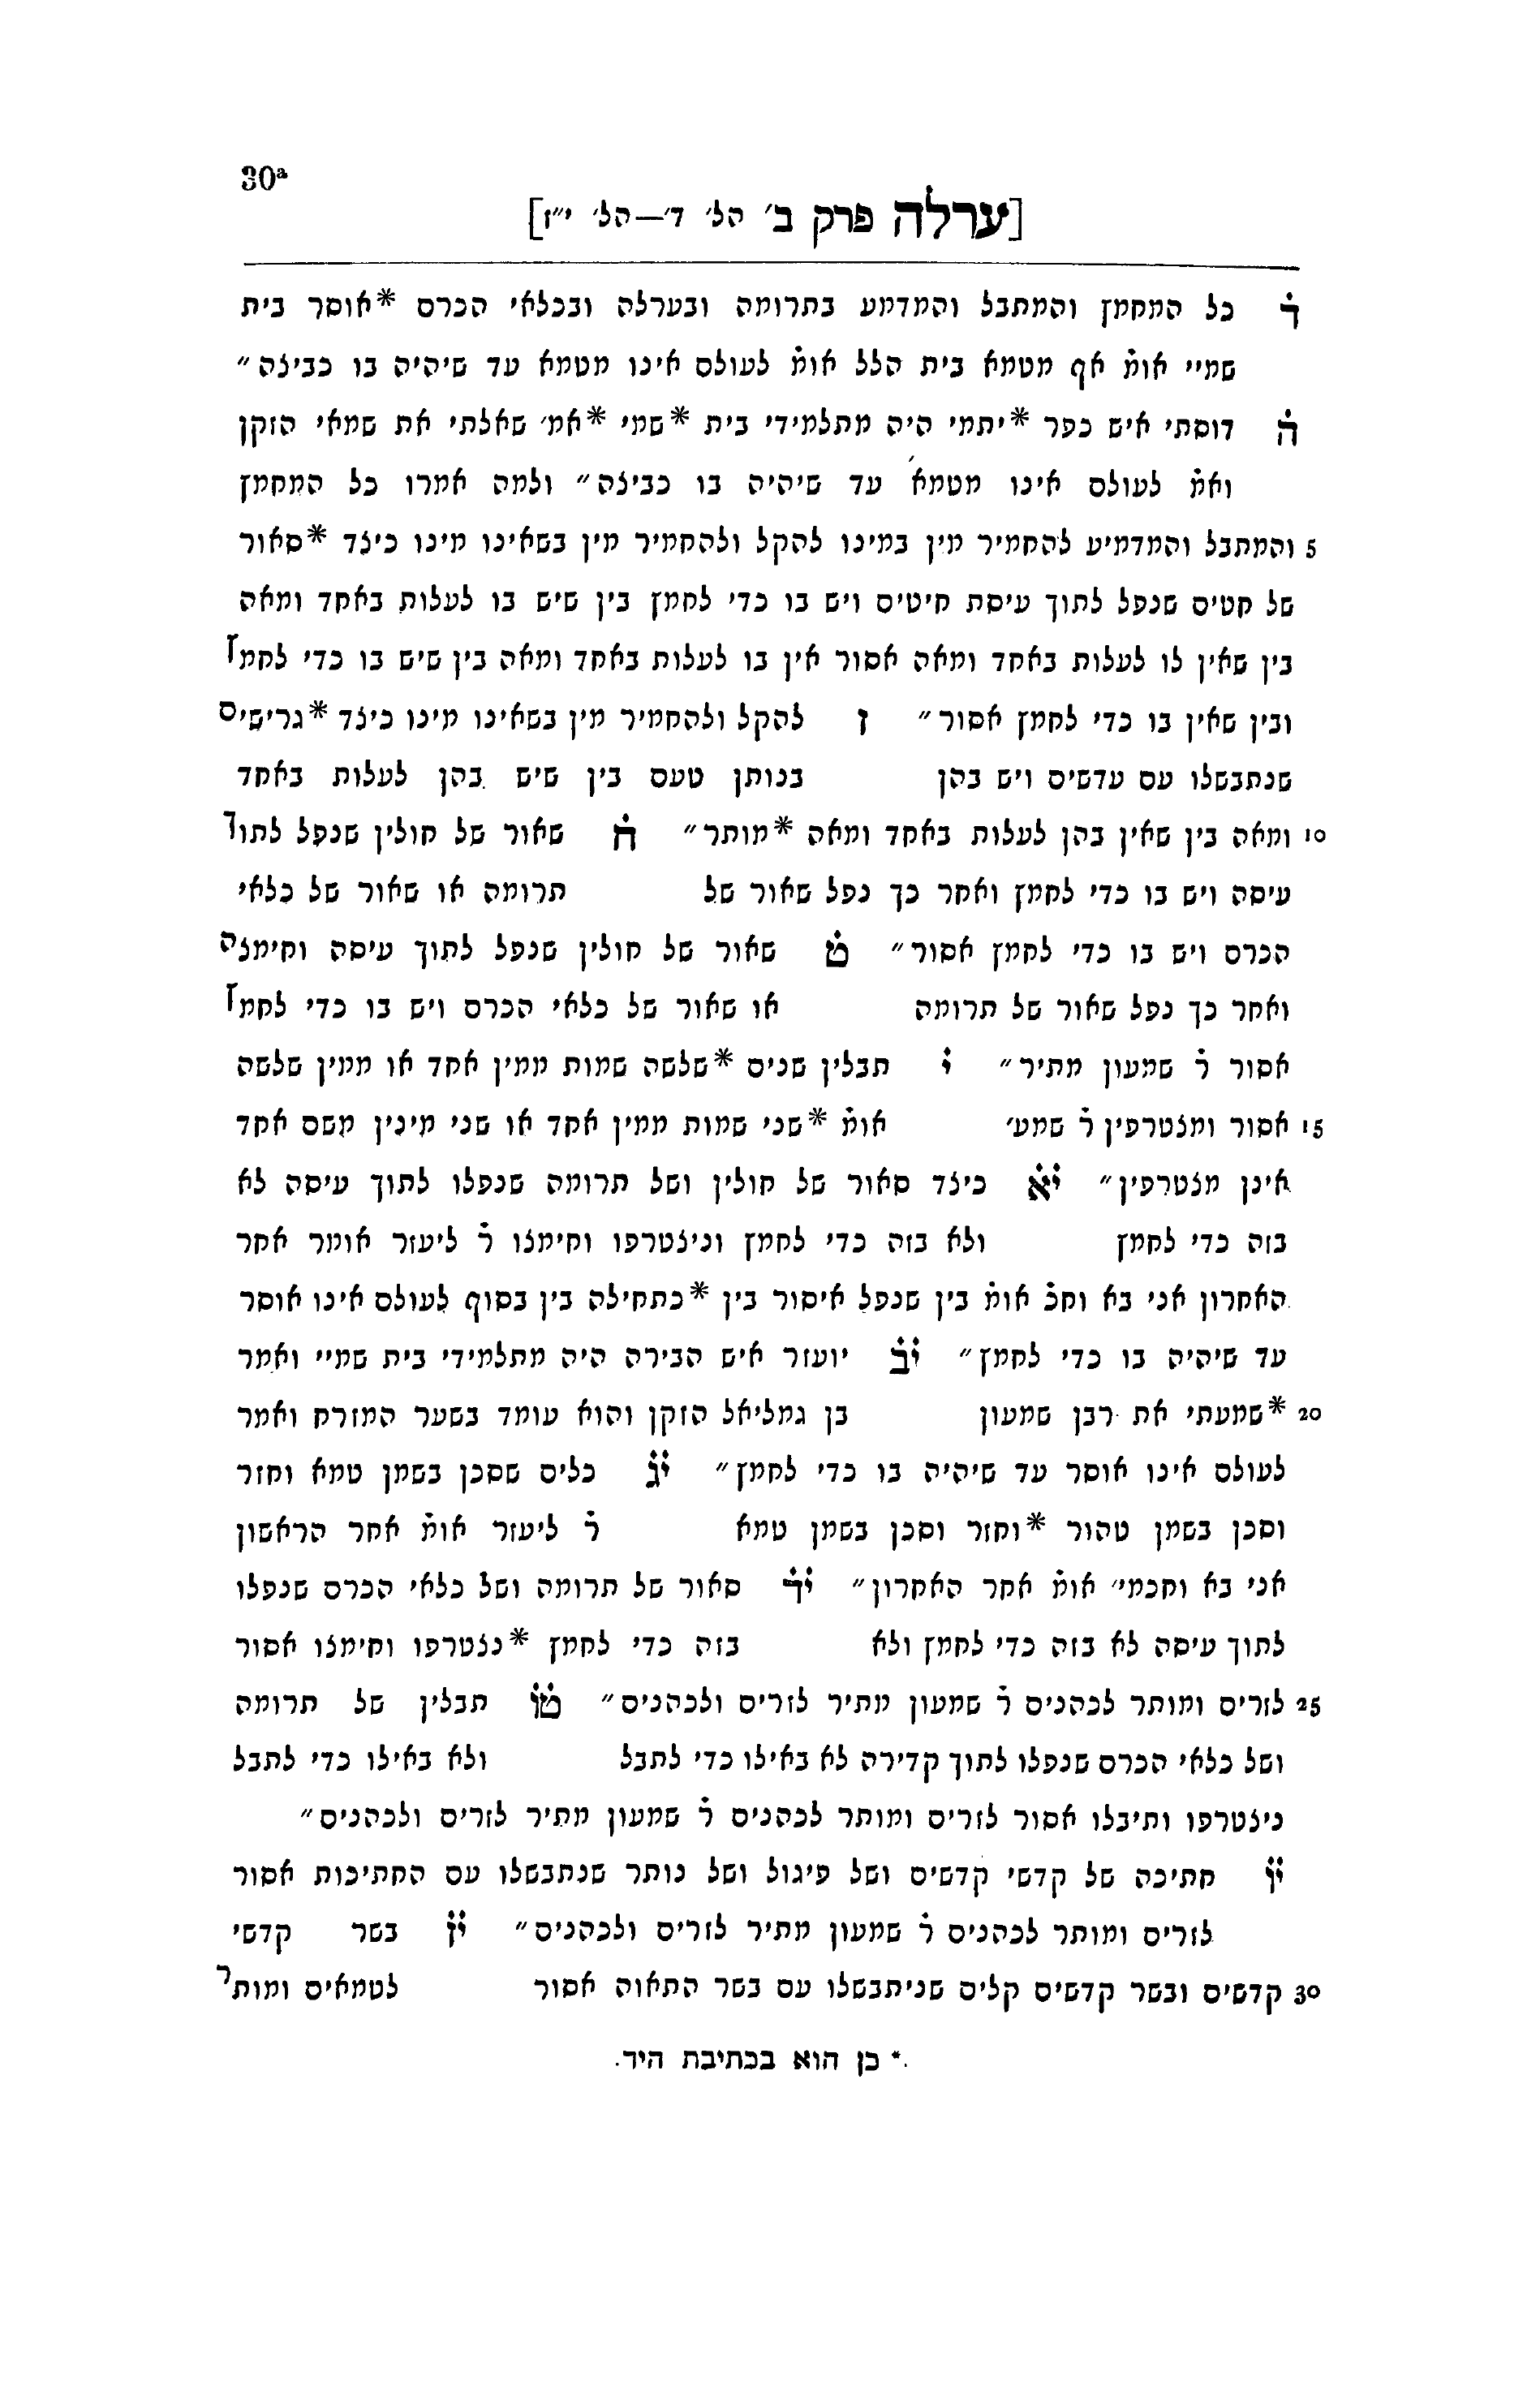 30a
[ערלה פרק ב׳ הל׳ ד׳—הל׳ י״ז]
ד כל המחמץ והמתבל והמדמע בתרומה ובערלה ובכלאי הכרם *אוסר בית
שמיי אומ̇ אף מטמא בית הלל אומ̇ לעולם אינו מטמא עד שיהיה בו כביצה״
ה דוסתי איש כפר *יתמי היה מתלמידי בית *שמי *אמ׳ שאלתי את שמאי הזקן
ואמ̇ לעולם אינו מטמא עד שיהיה בו כביצה״ ולמה אמרו כל המחמץ
5 והמתבל והמדמיע להחמיר מין במינו להקל ולהחמיר מין בשאינו מינו כיצד *סאור
של חטים שנפל לתוך עיסת חיטים ויש בו כדי לחמץ בין שיש בו לעלות באחד ומאה
בין שאין לו לעלות באחד ומאה אסור אין בו לעלות באחד ומאה בין שיש בו כדי לחמץ
ובין שאין בו כדי לחמץ אסור״ ז להקל ולהחמיר מין בשאינו מינו כיצד *גרישים
שנתבשלו עם עדשים ויש בהן בנותן טעם בין שיש בהן לעלות באחד
10 ומאה בין שאין בהן לעלות באחד ומאה *מותר״ ח שאור של חולין שנפל לתוך
עיסה ויש בו כדי לחמץ ואחר כך נפל שאור של תרומה או שאור של כלאי
הכרם ויש בו כדי לחמץ אסור״ ט שאור של חולין שנפל לתוך עיסה וחימצה
ואחר כך נפל שאור של תרומה או שאור של כלאי הכרם ויש בו כדי לחמץ
אסור ר̇ שמעון מתיר״ י תבלין שנים *שלשה שמות ממין אחד או ממין שלשה
15 אסור ומצטרפין ר̇ שמע׳ אומ̇ *שני שמות ממין אחד או שני מינין משם אחד
אינן מצטרפין״ יא כיצד סאור של חולין ושל תרומה שנפלו לתוך עיסה לא
בזה כדי לחמץ ולא בזה כדי לחמץ וניצטרפו וחימצו ר̇ ליעזר אומר אחר
האחרון אני בא וחכ̇ אומ̇ בין שנפל איסור בין *כתחילה בין בסוף לעולם אינו אוסר
עד שיהיה בו כדי לחמץ״ יב יועזר איש הבירה היה מתלמידי בית שמיי ואמר
20 *שמעתי את רבן שמעון בן גמליאל הזקן והוא עומד בשער המזרח ואמר
לעולם אינו אוסר עד שיהיה בו כדי לחמץ״ יג כלים שסכן בשמן טמא וחזר
וסכן בשמן טהור *וחזר וסכן בשמן טמא ר̇ ליעזר אומ̇ אחר הראשון
אני בא וחכמי׳ אומ̇ אחר האחרון״ יד סאור של תרומה ושל כלאי הכרם שנפלו
לתוך עיסה לא בזה כדי לחמץ ולא בזה כדי לחמץ *נצטרפו וחימצו אסור
25 לזרים ומותר לכהנים ר̇ שמעון מתיר לזרים ולכהנים״ טו תבלין של תרומה
ושל כלאי הכרם שנפלו לתוך קדירה לא באילו כדי לתבל ולא באילו כדי לתבל
ניצטרפו ותיבלו אסור לזרים ומותר לכהנים ר̇ שמעון מתיר לזרים ולכהנים״
יו חתיכה של קדשי קדשים ושל פיגול ושל נותר שנתבשלו עם החתיכות אסור
לזרים ומותר לכהנים ר̇ שמעון מתיר לזרים ולכהנים״ יז בשר קדשי
30 קדשים ובשר קדשים קלים שניתבשלו עם בשר התאוה אסור לטמאים ומותר
* כן הוא בכתיבת היד.